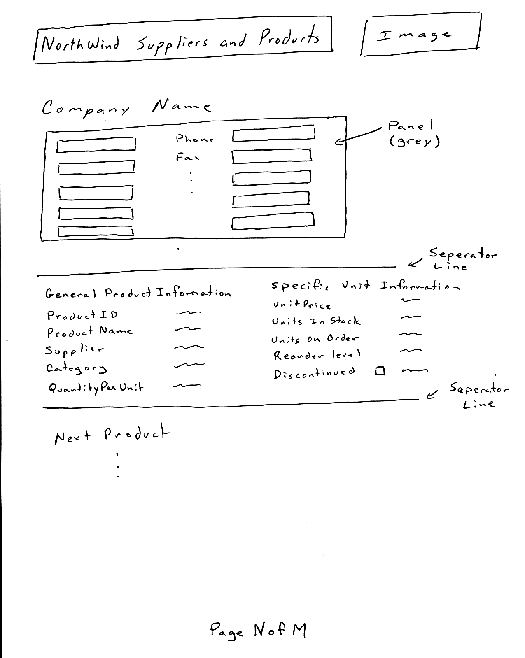 NorthWind Suppliers and Products
Image
Company Name
Phone
Fax
Panel
(grey)
Seperator
Line
General Product Information
Product ID
Product Name
Supplier
Category
QuantityPerUnit
Specific Unit Information
UnitPrice
Units In Stock
Units On Order
Reorder level
Discontinued
Seperator
Line
Next Product
Page N of M